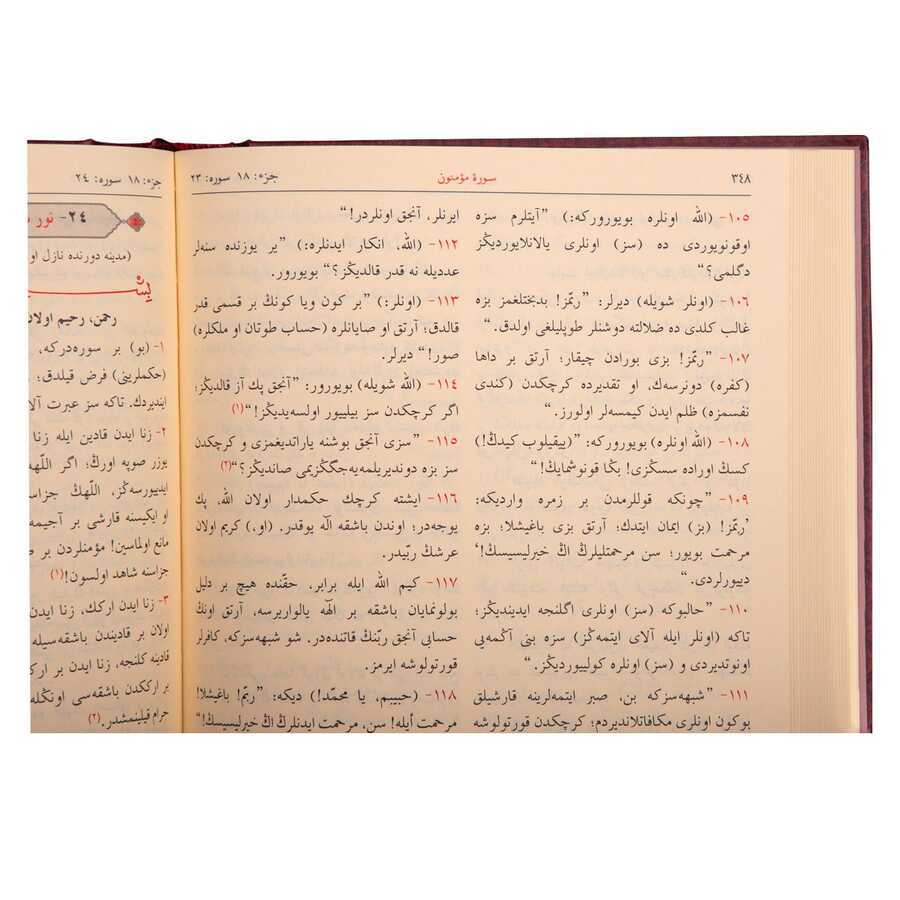 ٣٤٨
سورۀ مؤمنون
جزء: ١٨ سوره: ٢٣
١٠٥- (الله اونلره بويورورکه:) ”آيتلرم سزه
اوقونويوردی ده (سز) اونلری يالانلايورديڭز
دگلمی؟“
١٠٦- (اونلر شويله) ديرلر: ”ربّمز! بدبختلغمز بزه
غالب کلدی ده ضلالته دوشنلر طوپليلغی اولدق.“
١٠٧- ”ربّمز! بزی بورادن چيقار؛ آرتق بر داها
(کفره) دونرسەك، او تقديرده کرچکدن (کندی
نفسمزه) ظلم ايدن کيمسەلر اولورز.“
١٠٨- (الله اونلره) بويورورکه: ”(ييقيلوب کيدڭ!)
کسڭ اوراده سسڭزی! بڭا قونوشمايڭ!“
١٠٩- ”چونکه قوللرمدن بر زمره وارديکه:
’ربّمز! (بز) ايمان ايتدك؛ آرتق بزی باغيشلا؛ بزه
مرحمت بويور؛ سن مرحمتليلرڭ اڭ خيرليسيسڭ!‘
دييورلردی.“
١١٠- ”حالبوکه (سز) اونلری اگلنجه ايدينديڭز؛
تاکه (اونلر ايله آلای ايتمەڭز) سزه بنی آڭمەيی
اونوتديردی و (سز) اونلره کولييورديڭز.“
١١١- ”شبهەسزکه بن، صبر ايتمەلرينه قارشيلق
بوکون اونلری مکافاتلانديردم؛ کرچکدن قورتولوشه
ايرنلر، آنجق اونلردر!“
١١٢- (الله، انکار ايدنلره:) ”ير يوزنده سنەلر
عدديله نه قدر قالديڭز؟“ بويورور.
١١٣- (اونلر:) ”بر کون ويا کونڭ بر قسمی قدر
قالدق؛ آرتق او صايانلره (حساب طوتان او ملکلره)
صور!“ ديرلر.
١١٤- (الله شويله) بويورور: ”آنجق پك آز قالديڭز؛
اگر کرچکدن سز بيلييور اولسەيديڭز!“(١)
١١٥- ”سزی آنجق بوشنه ياراتديغمزی و کرچکدن
سز بزه دونديريلمەيەجگڭزيمی صانديڭز؟“(٢)
١١٦- ايشته کرچك حکمدار اولان الله، پك
يوجەدر؛ اوندن باشقه الٓه يوقدر. (او،) کريم اولان
عرشڭ ربّيدر.
١١٧- کيم الله ايله برابر، حقّنده هيچ بر دليل
بولونمايان باشقه بر الٓهه يالواريرسه، آرتق اونڭ
حسابی آنجق ربّنڭ قاتندەدر. شو شبهەسزکه، کافرلر
قورتولوشه ايرمز.
١١٨- (حبيبم، يا محمّد!) ديکه: ”ربّم! باغيشلا!
مرحمت أيله! سن، مرحمت ايدنلرڭ اڭ خيرليسيسڭ!“
جزء: ١٨ سوره: ٢٤
٢٤- نور
(مدينه دورنده نازل او
رحمن، رحيم اولان
١- (بو) بر سورەدرکه،
(حکملرينی) فرض قيلدق؛
اينديردك. تاکه سز عبرت آلا
٢- زنا ايدن قادين ايله زنا
يوزر صوپه اورڭ؛ اگر اللّٰهه
ايدييورسەڭز، اللّٰهڭ جزاس
او ايکيسنه قارشی بر آجيمه
مانع اولماسين! مؤمنلردن بر
جزاسنه شاهد اولسون!(١)
٣- زنا ايدن ارکك، زنا ايدن
اولان بر قاديندن باشقەسيله
قادينه کلنجه، زنا ايدن بر ارک
بر ارککدن باشقەسی اونڭله
حرام قيلينمشدر.(٢)